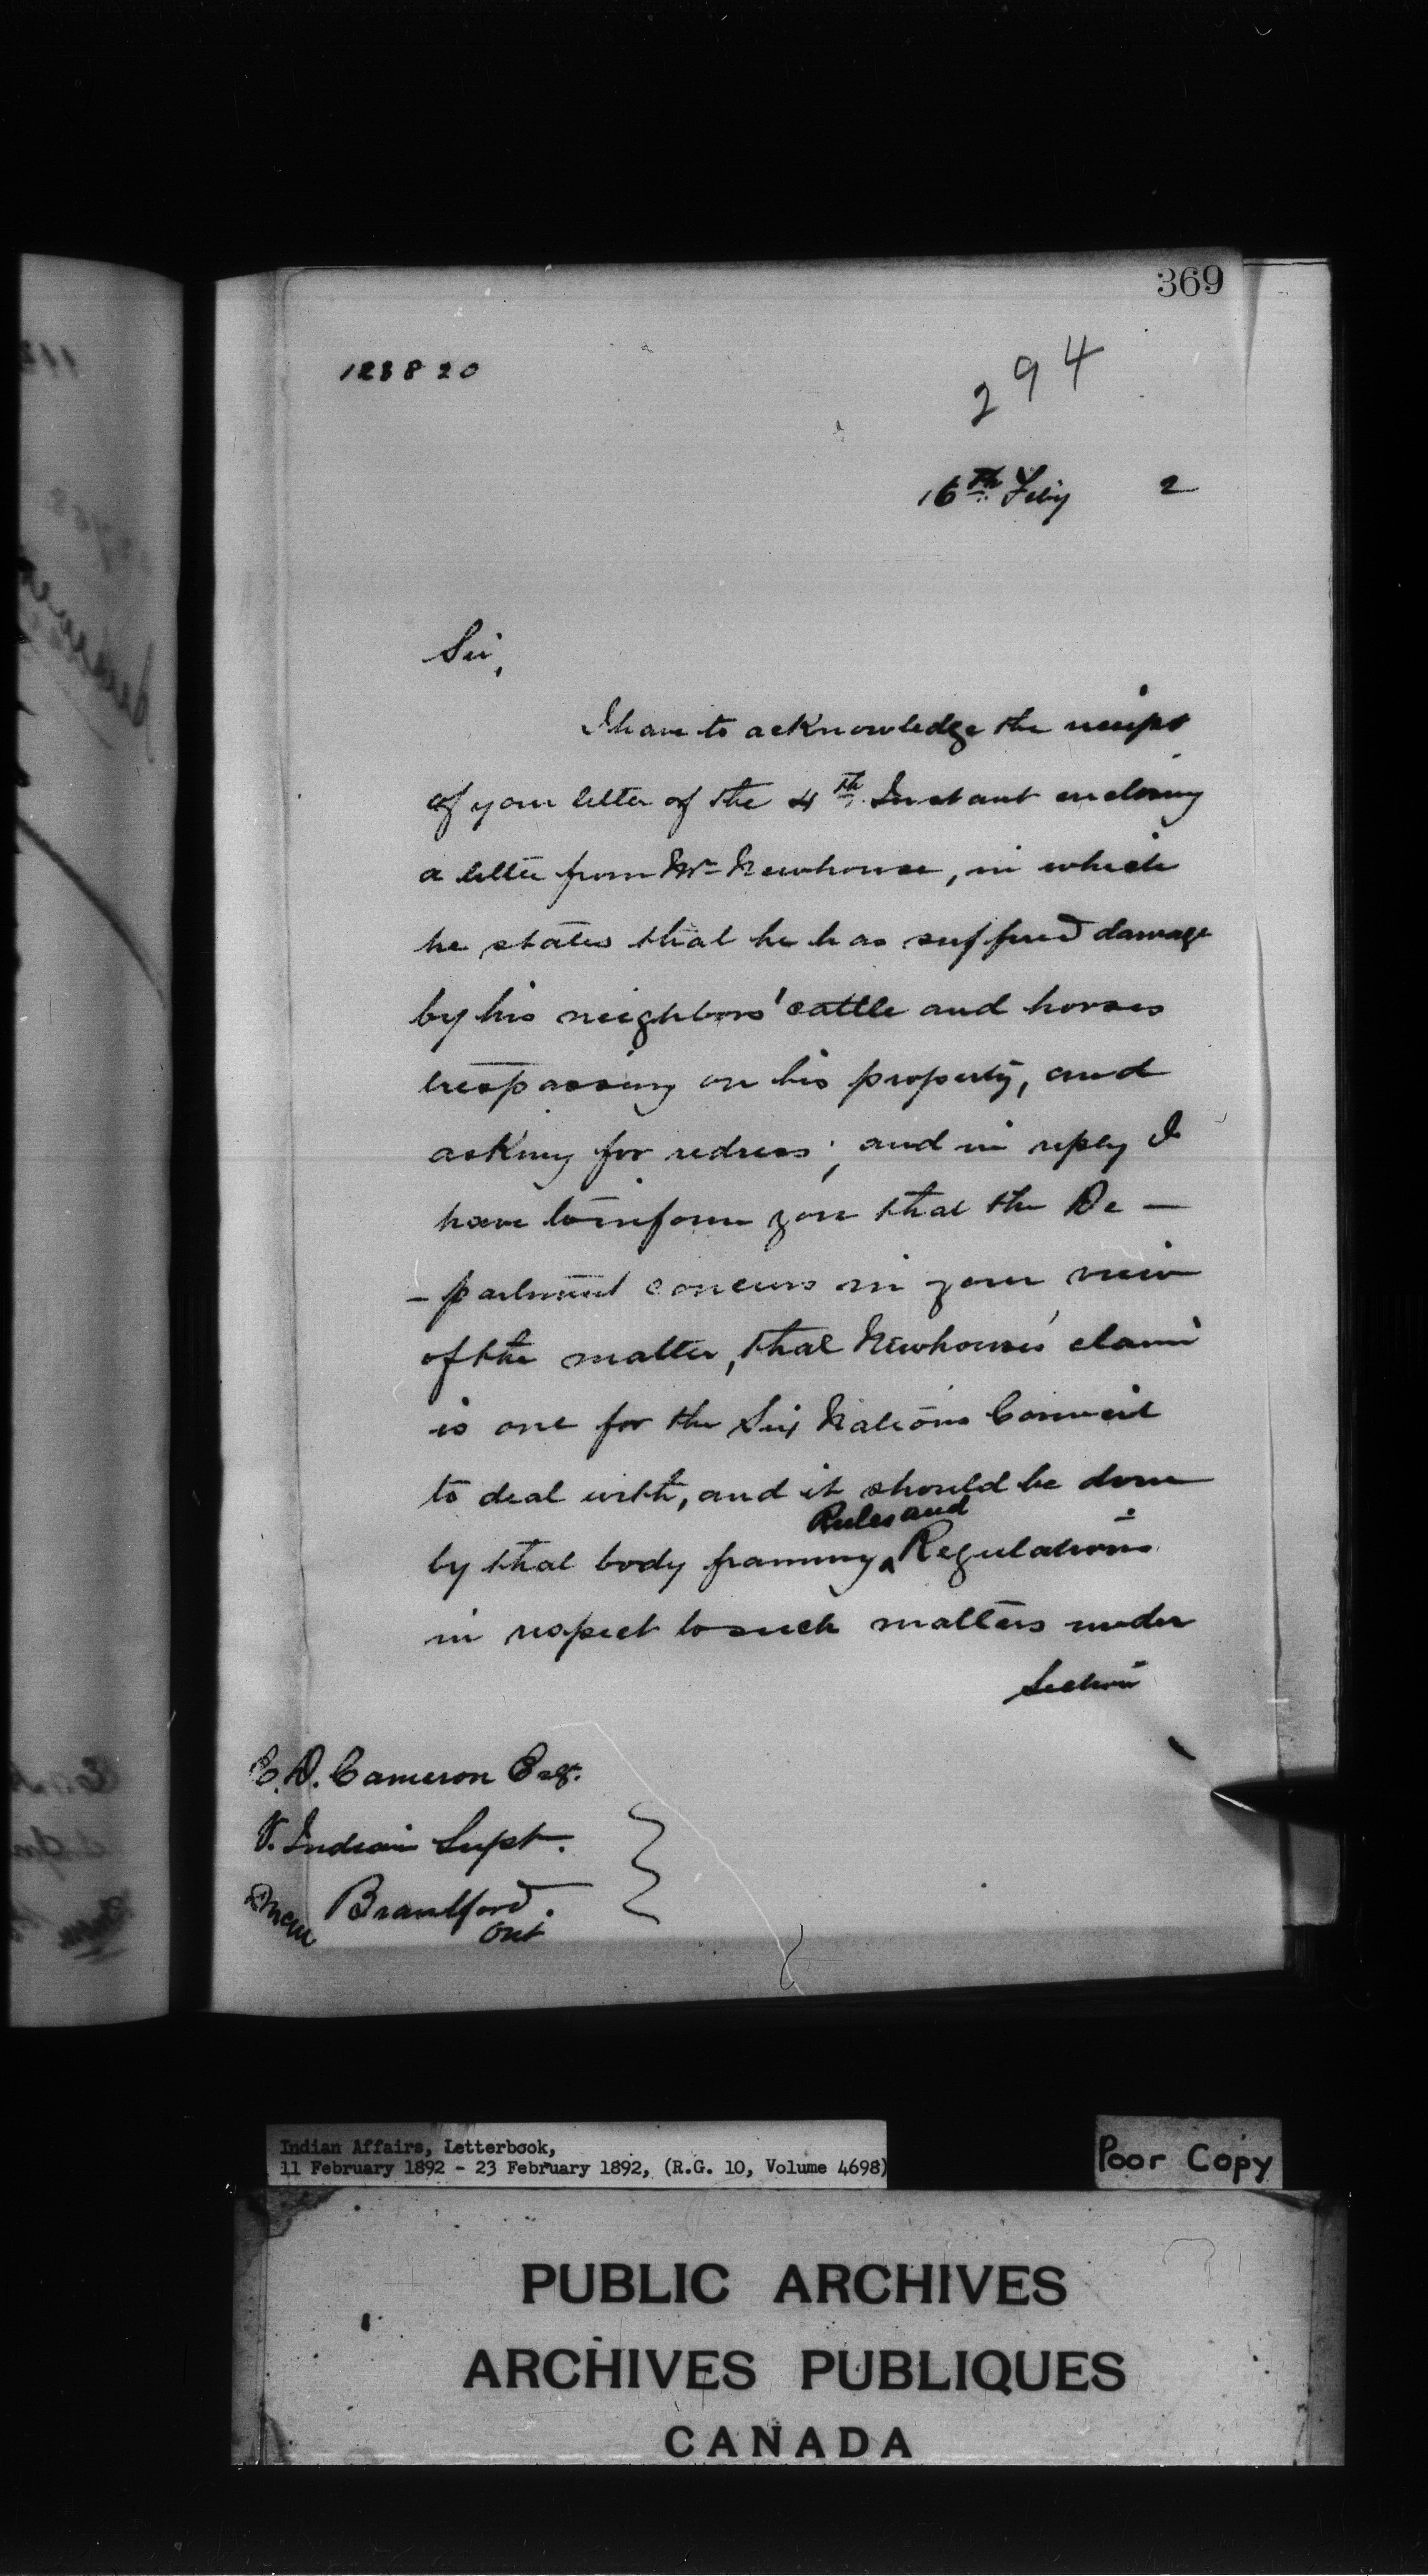 369
123820
294
16th Feby 2
Sir,
I have to acknowledge the receipt
of your letter of the 4th Instant enclosing
a letter from Mr Newhouse, in which
he states that he has suffered damage
by his neighbors' cattle and horses
trespassing on his property, and
asking for redress; and in reply I
have to inform you that the De-
-partment concurs in your view
of the matter, that Newhouse's claim
is one for the Six Nations Council
to deal with, and it should be done
Rules and
by that body framing Regulations
in respect to such matters under
Section
E. D. Cameron Esqr.
V. Indian Supt.
Brantford.
Ont
Indian Affairs, Letterbook,
11 February 1892 - 23 February 1892, (R.G. 10, Volume 4698)
Poor Copy
PUBLIC ARCHIVES
ARCHIVES PUBLIQUES
CANADA